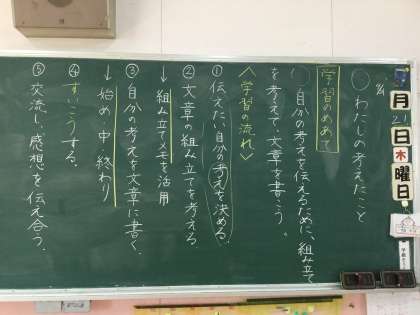 わたしの考えたこと
学習のめあて
自分の考えを伝えるために、組み立て
を考えて、文章を書こう。
〈学習の流れ〉
① 伝えたい自分の考えを決める。
② 文章の組み立てを考える
↓ 組み立てメモを活用
③ 自分の考えを文章に書く。
↓ 始め・中・終わり
④ すいこうする。
⑤ 交流し、感想を伝え合う。
月
21
日
木
曜
日